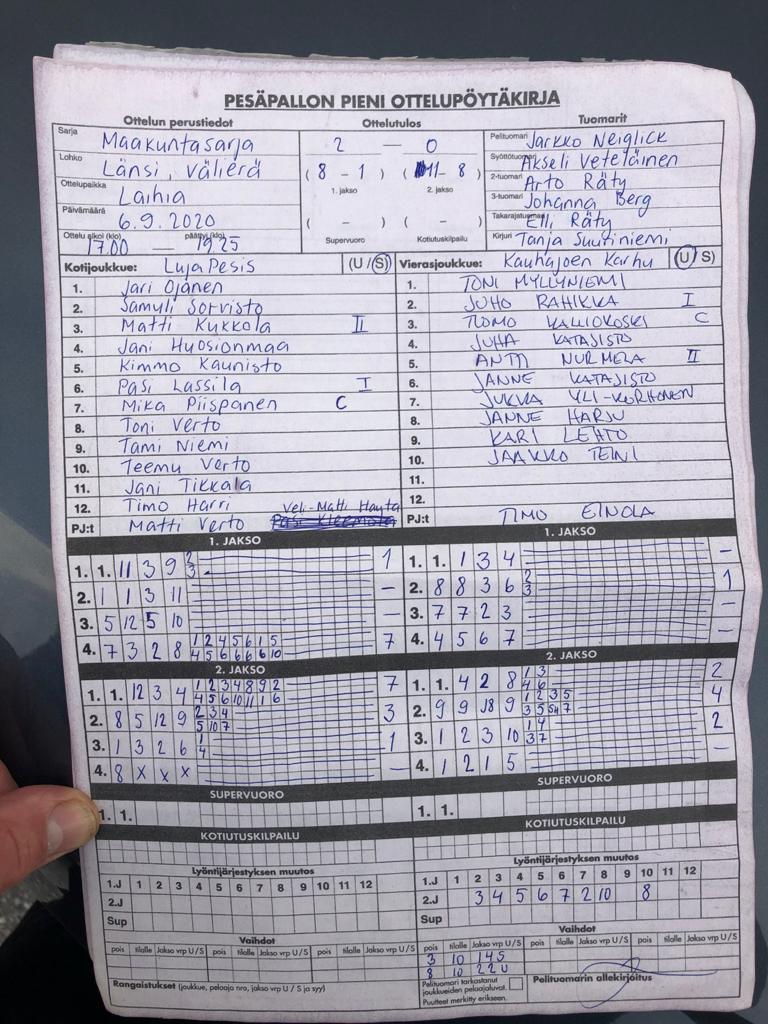 PESÄPALLON PIENI OTTELUPÖYTÄKIRJA
Ottelun perustiedot Ottelutulos Tuomarit
Sarja Maakuntasarja 2 — 0 Pelituomari Jarkko Neiglick
Lohko Länsi, välierä (8 - 1) (11 - 8) Syöttötuomari Akseli Veteläinen
Ottelupaikka Laihia 1. jakso 2. jakso 2-tuomari Arto Räty
Päivämäärä 6.9.2020 ( - ) ( - ) 3-tuomari Johanna Berg
Takarajatuomari Elli Räty
Ottelu alkoi (klo) 17.00 — päättyi (klo) 19.25 Supervuoro Kotiutuskilpailu Kirjuri Tanja Suutiniemi
Kotijoukkue: LujaPesis (U / S) Vierasjoukkue: Kauhajoen Karhu (U / S)
1. Jari Ojanen 1. TONI MYLLYNIEMI
2. Samuli Sorvisto 2. JUHO RAHIKKA I
3. Matti Kykkola II 3. TUOMO KALLIOKOSKI C
4. Jani Huosionmaa 4. JUHA KATAJISTO
5. Kimmo Kaunisto 5. ANTTI NURMELA II
6. Pasi Lassila I 6. JANNE KATAJISTO
7. Mika Piispanen C 7. JUKKA YLI-KORHONEN
8. Toni Verto 8. JANNE HARJU
9. Tami Niemi 9. KARI LEHTO
10. Teemu Verto 10. JAAKKO TEINI
11. Jani Tikkala 11.
12. Timo Harri 12.
Veli-Matti Hauta
PJ:t Matti Verto PJ:t TIMO EINOLA
1. JAKSO 1. JAKSO
1. 1. 11 3 9 2 3 1 1. 1. 1 3 4 –
2. 1 1 3 11 – 2. 8 8 3 6 2 3 1
3. 5 12 5 10 – 3. 7 7 2 3 –
4. 7 3 2 8 1 2 4 5 6 1 5 7 4. 4 5 6 7 –
4 5 6 6 6 6 10
2. JAKSO 2. JAKSO
1. 1. 12 3 4 1 2 3 4 8 9 2 7 1. 1. 4 2 8 1 3 2
4 5 6 10 11 1 6 4 6
2. 8 5 12 9 2 3 4 3 2. 9 9 18 9 1 2 3 5 4
5 10 7
3. 1 3 2 6 1 1 3. 1 2 3 10 1 4 2
4 3 7
4. 8 x x x – 4. 1 2 1 5 –
SUPERVUORO SUPERVUORO
1. 1. 1. 1.
KOTIUTUSKILPAILU KOTIUTUSKILPAILU
Lyöntijärjestyksen muutos Lyöntijärjestyksen muutos
1.J 1 2 3 4 5 6 7 8 9 10 11 12 1.J 1 2 3 4 5 6 7 8 9 10 11 12
2.J 2.J 3 4 5 6 7 2 10 8
Sup Sup
Vaihdot Vaihdot
pois tilalle Jakso vrp U / S pois tilalle Jakso vrp U / S pois tilalle Jakso vrp U / S pois tilalle Jakso vrp U / S pois tilalle Jakso vrp U / S pois tilalle Jakso vrp U / S
3 10 1 4 S
8 10 2 2 U
Rangaistukset (joukkue, pelaaja nro, jakso vrp U / S ja syy)
Pelituomari tarkastanut joukkueiden pelaajaluvat.
Puutteet merkitty erikseen.
Pelituomarin allekirjoitus